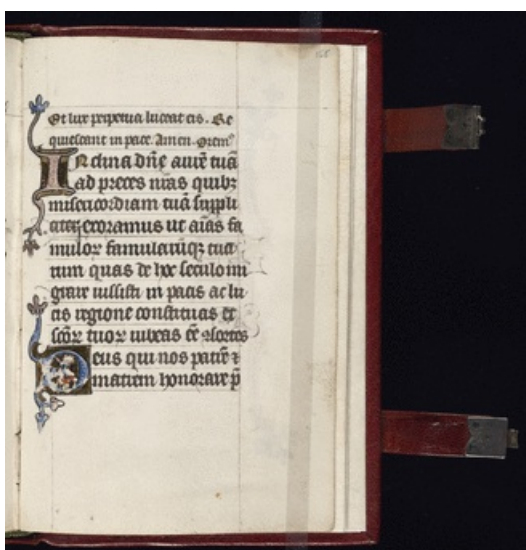 Et lux perpetua luceat eis. Re
quiescant in pace. Amen. Orem9
Inclina dn̄e aurē tuā
ad preces nr̄as quibꝫ
misericordiam tuā suppli
citer̄ exoramus ut aīas fa
muloꝝ famularūqꝫ tua
rum quas de hoc seculo mi
grare iussisti in pacis ac lu
cis regione constituas et
sc̄oꝝ tuoꝝ iubeas eē ꝯsortes
Deus qui nos patrē ⁊
matrem honorare p̄